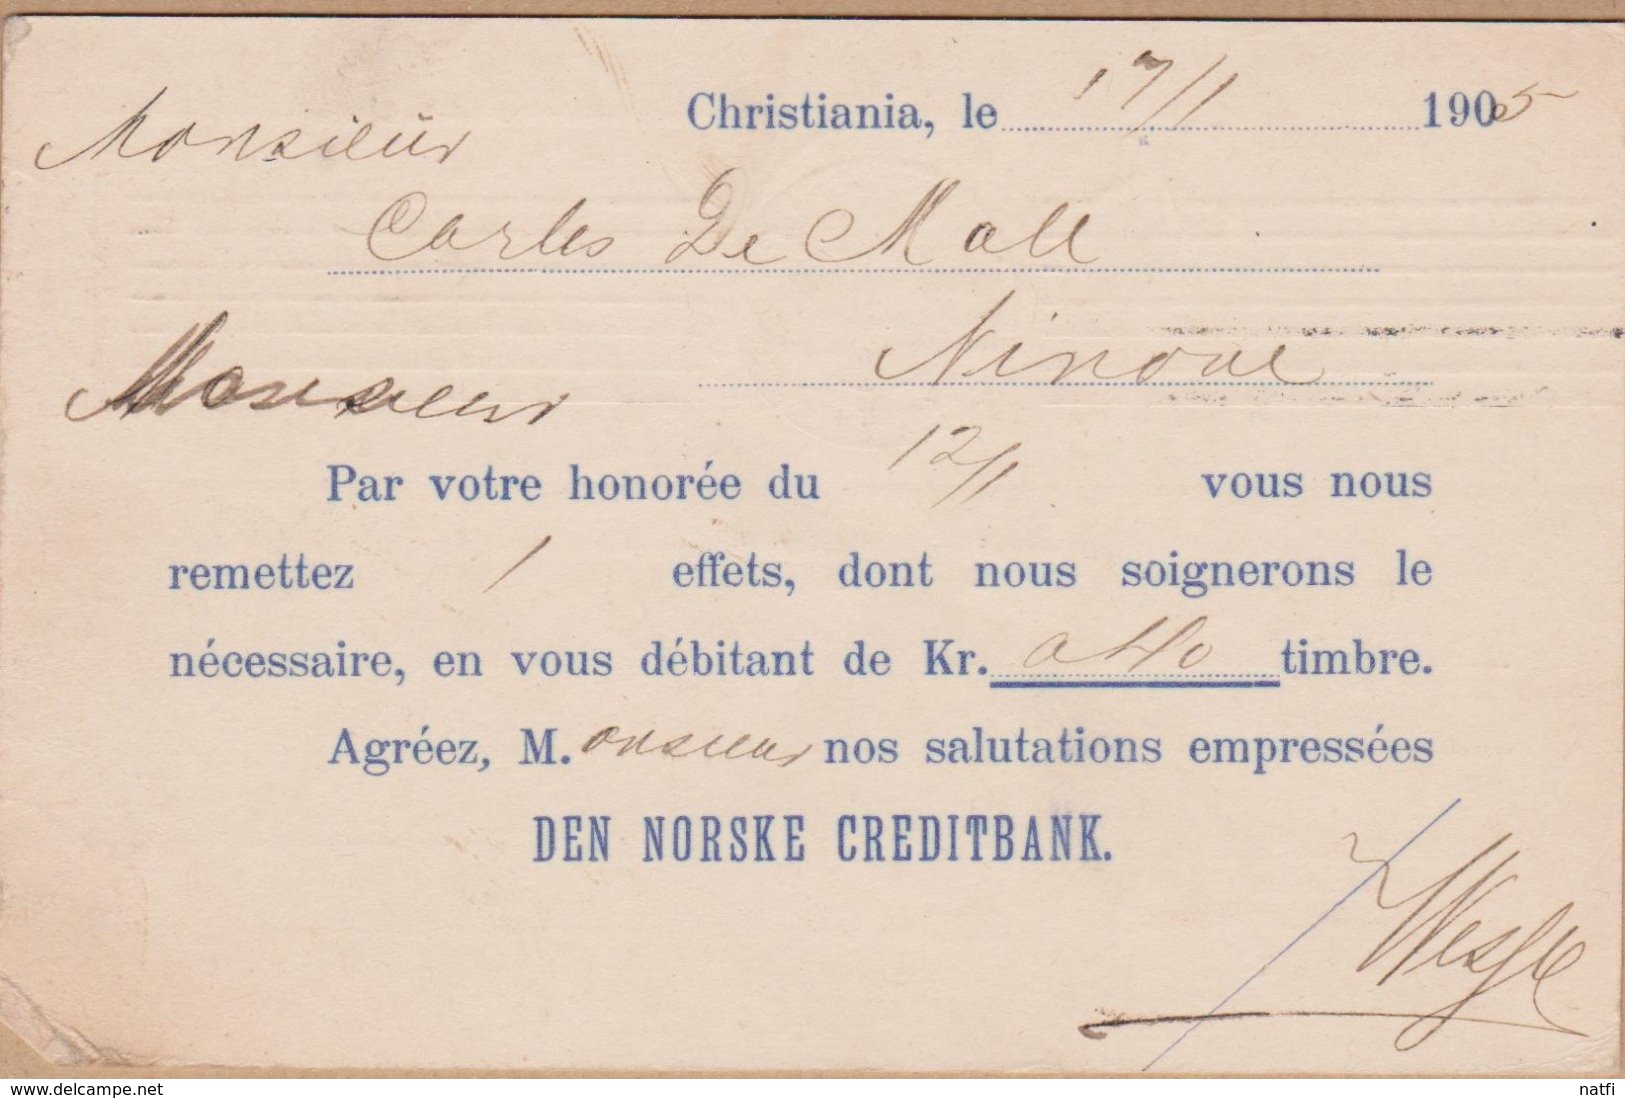 Christiania, le 17/1 1905
Monsieur
Carles De Moll
Ninove
Monsieur
Par votre honorée du 12/1 vous nous
remettez 1 effets, dont nous soignerons le
nécessaire, en vous débitant de Kr. 0 40 timbre.
Agréez, M.onsieur nos salutations empressées
DEN NORSKE CREDITBANK.
www.delcampe.net
natfi